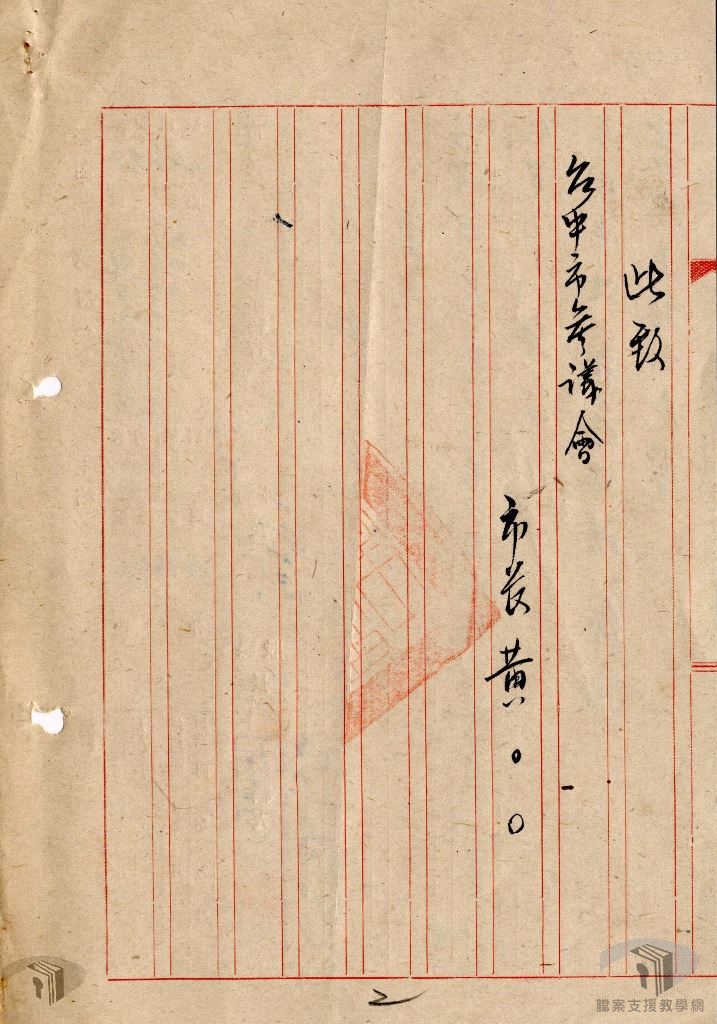 此致
台中市參議會
市長黃○○
2
檔案支援教學網